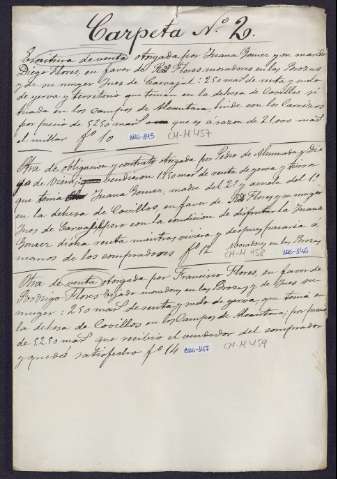 Carpeta Nº 2.
Escritura de venta otorgada por Juana Gomez y su marido
Diego Flores, en favor de Rº Flores moradores en las Brozas
y de su muger Ines de Carvajal: 250 mais de renta y nolo
de yerva y heredero que tenian en la dehesa de Cocillos si
tuada en los campos de Alcantara, linde con los Carrizos
por precio de 5250 mais que es á razon de 21000 mais
el millar fº 10 CM-M 457
Otra de obligacion y contrato otorgada por Pedro de Alvarado y Die
vendieron 1850 mais de renta de yerva y
que tenia Juana Gomez, madre del 2º y avuela del 1º
en la dehesa de Cocillos, en favor de Rº Flores y su muger
Ines de Carvajal pero con la condicion de disfrutar la Juana
Gomez dicha renta mientras viviera y despues pasaria á
manos de los compradores fº 12 CM-M 458
Otra de venta otorgada por Francisco Flores, en favor de
Rodrigo Flores morador en las Brozas y de Ines su
muger: 250 mais de renta y nolo de yerva, que tenia en
la dehesa de Cocillos en los Campos de Alcantara, por precio
de 5250 mais que recibió el vendedor del comprador
y quedó satisfecho fº 14 CM-M 459